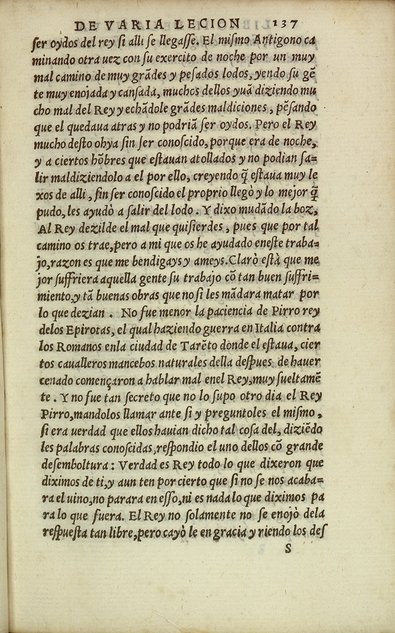 DE VARIA LECION 137
ser oydos del rey si alli se llegasse. El mismo Antigono ca
minando otra vez con su exercito de noche por un muy
mal camino de muy grãdes y pesados lodos, yendo su gẽ
te muy enojada y cansada, muchos dellos yuã diziendo mu
cho mal del Rey y echãdole grãdes maldiciones, pẽsando
que el quedaua atras y no podriã ser oydos. Pero el Rey
mucho desto ohya sin ser conoscido, porque era de noche,
y a ciertos hõbres que estauan atollados y no podian sa-
lir maldiziendolo a el por ello, creyendo q̃ estaua muy le
xos de alli, sin ser conoscido el proprio llegò y lo mejor q̃
pudo, les ayudò a salir del lodo. Y dixo mudãdo la boz,
Al Rey dezilde el mal que quisierdes, pues que por tal
camino os trae, pero a mi que os he ayudado eneste traba-
jo, razon es que me bendigays y ameys. Clarò està que me
jor suffriera aquella gente su trabajo cõ tan buen suffri-
miento, y tã buenas obras que no si les mãdara matar por
lo que dezian. No fue menor la paciencia de Pirro rey
delos Epirotas, el qual haziendo guerra en Italia contra
los Romanos enla ciudad de Tarẽto donde el estaua, cier
tos caualleros mancebos naturales della despues de hauer
cenado començaron a hablar mal enel Rey, muy sueltamẽ
te. Y no fue tan secreto que no lo supo otro dia el Rey
Pirro, mandolos llamar ante si y preguntoles el mismo,
si era verdad que ellos hauian dicho tal cosa del, diziẽdo
les palabras conoscidas, respondio el uno dellos cõ grande
desemboltura: Verdad es Rey todo lo que dixeron que
diximos de ti, y aun ten por cierto que si no se nos acaba-
ra el uino, no parara en esso, ni es nada lo que diximos pa
ra lo que fuera. El Rey no solamente no se enojò dela
respuesta tan libre, pero cayò le en gracia y riendo los des
S